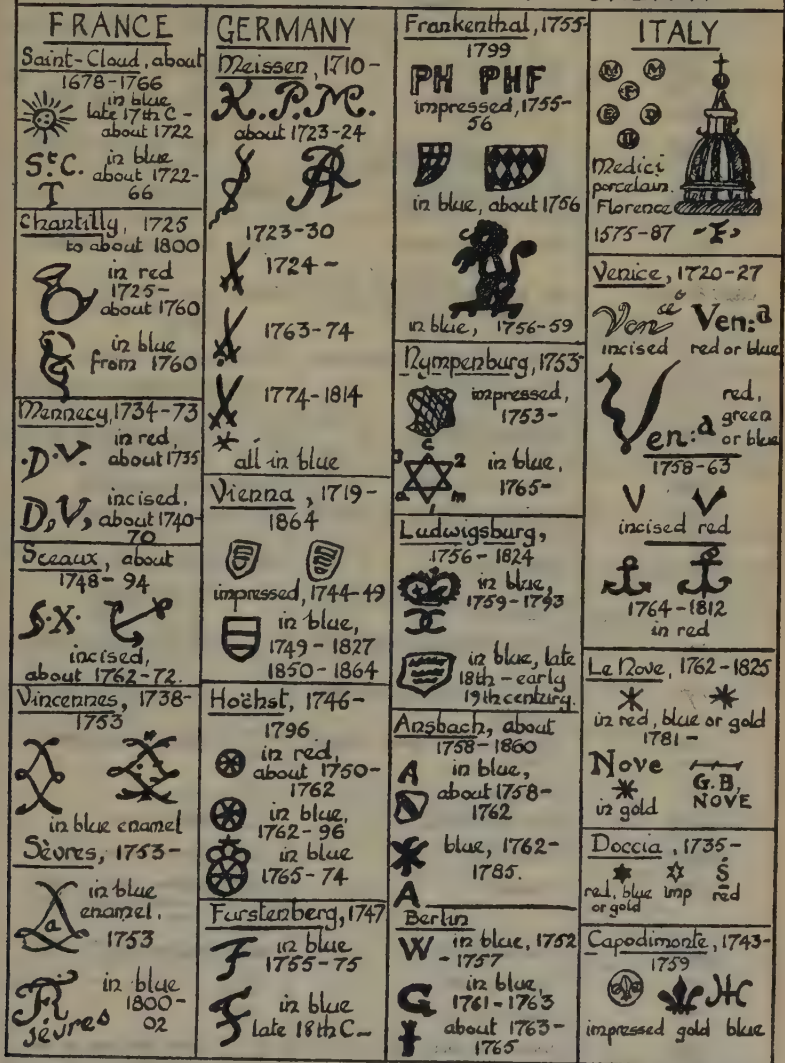 FRANCE
Saint-Cloud, about
1678-1766
in blue
late 17th C-
about 1722
St.C.
T
in blue
about 1722-
66
Chantilly, 1725
to about 1800
in red
1725-
about 1760
in blue
from 1760
Mennecy, 1734-73
.D.V.
in red,
about 1735
D,V,
incised,
about 1740-
70
Sceaux, about
1748-94
S.X.
incised,
about 1762-72.
Vincennes, 1738-
1753
in blue enamel
Sèvres, 1753-
a
in blue
enamel.
1753
R
sèvres
in blue
1800-
02
GERMANY
Meissen, 1710-
K.P.M.
about 1723-24
AR
1723-30
1724-
1763-74
1774-1814
all in blue
Vienna, 1719-
1864
impressed, 1744-49
in blue,
1749-1827
1850-1864
Hoëhst, 1746-
1796
in red,
about 1750-
1762
in blue,
1762-96
in blue
1765-74
Furstenberg, 1747
F
in blue
1755-75
F
in blue
late 18th C-
Frankenthal, 1755-
1799
PH PHF
impressed, 1755-
56
in blue, about 1756
in blue, 1756-59
Nympenburg, 1753-
impressed,
1753-
c
3 2
a m
l
in blue,
1765-
Ludwigsburg,
1756-1824
in blue,
1759-1793
in blue, late
18th-early
19th century.
Ansbach, about
1758-1860
A
in blue,
about 1758-
1762
blue, 1762-
1785.
A
Berlin
W
in blue, 1752
-1757
G
in blue,
1761-1763
about 1763-
1765
ITALY
M M
F
E D
II
Medici
porcelain.
Florence
1575-87 -F-
Venice, 1720-27
Vena Ven:a
incised red or blue
Ven:a
red,
green
or blue
1758-63
V V
incised red
1764-1812
in red
Le Nove, 1762-1825
in red, blue or gold
1781-
Nove
in gold
G.B,
NOVE
Doccia, 1735-
red, blue imp red
or gold
Capodimonte, 1743-
1759
impressed gold blue